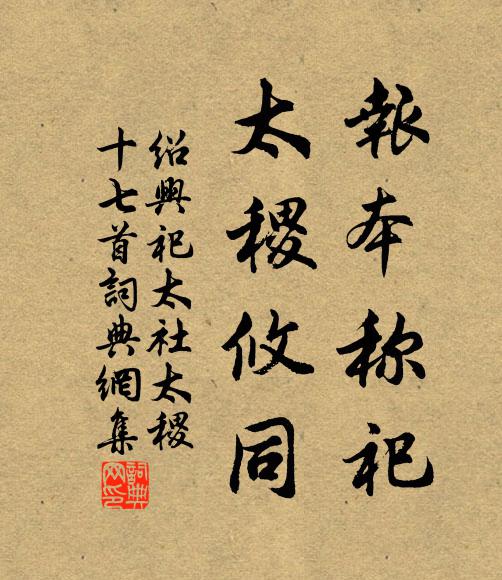 報本称祀
太稷攸同
紹興祀太社太稷
十七首詞典網集
詞典
网印